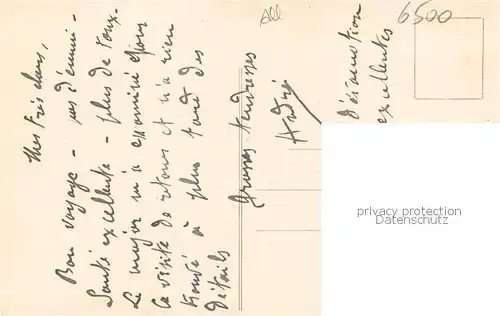 Mes très chers,
Bon voyage - pas d'ennui -
Santé excellente - plus de toux.
Le major m'a examiné dans
la visite de retour et n'a rien
trouvé à plus tard des
détails
Grosses tendresses
André
Désinfection
excellentes
6500
privacy protection
VERIDATA